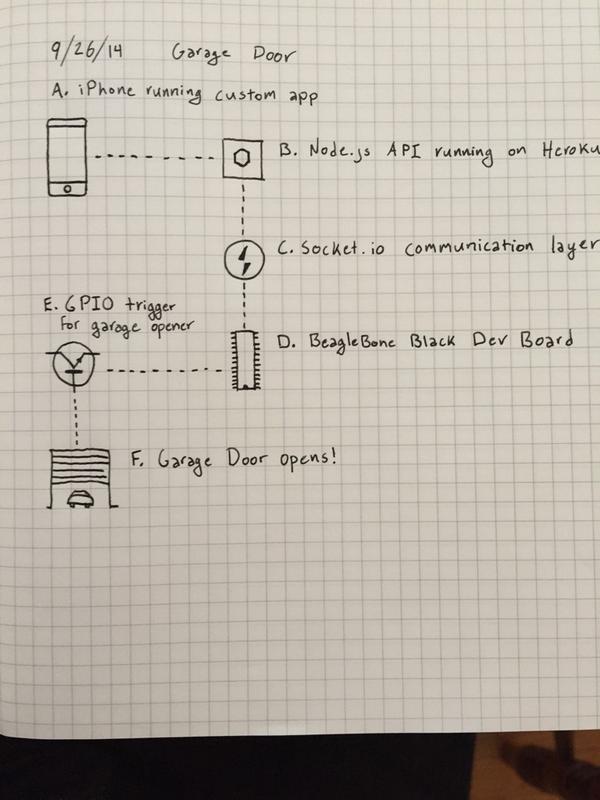 9/26/14 Garage Door
A. iPhone running custom app
B. Node.js API running on Heroku
C. Socket.io communication layer
E. GPIO trigger
for garage opener
D. BeagleBone Black Dev Board
F. Garage Door opens!